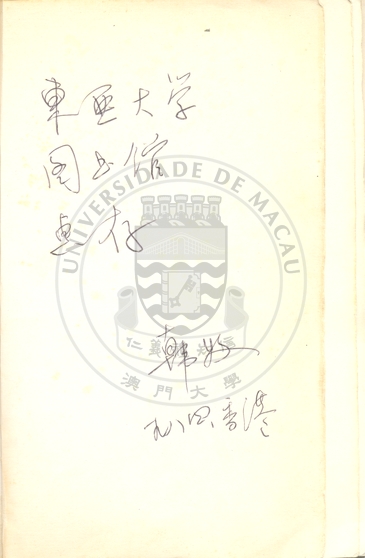 東亜大学
图书馆
惠存
UNIVERSIDADE DE MACAU
仁義禮知信
韓牧
澳門大學
九八四香港